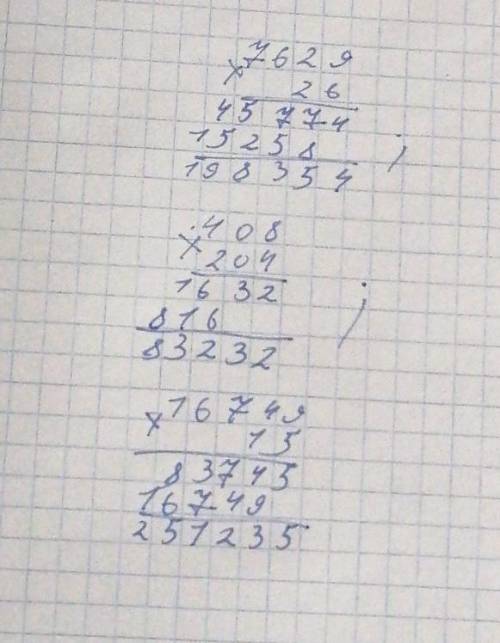 7629
× 26
45774
15258 ;
198354
× 408
204
1632 ;
816
83232
× 16749
15
83745
16749
251235